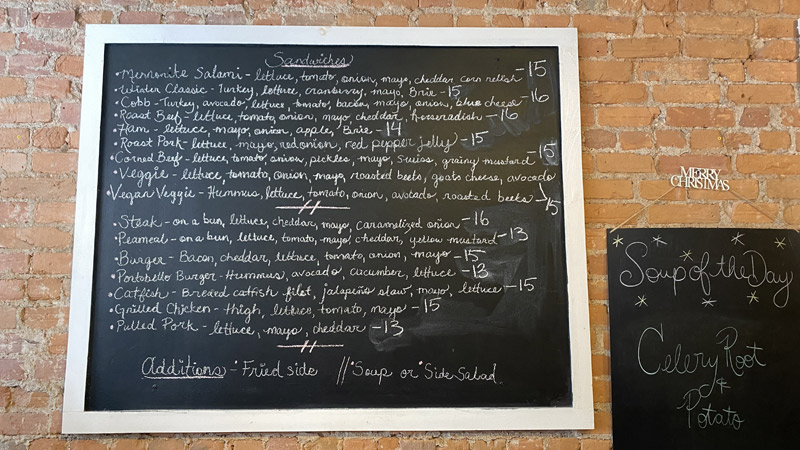 Sandwiches
•Mennonite Salami - lettuce, tomato, onion, mayo, cheddar corn relish -15
•Winter Classic - Turkey, lettuce, cranberry, mayo, Brie -15
•Cobb - Turkey, avocado, lettuce, tomato, bacon, mayo, onion, blue cheese -16
•Roast Beef - lettuce, tomato, onion, mayo, cheddar, horseradish -16
•Ham - lettuce, mayo, onion, apple, Brie -14
•Roast Pork - lettuce, mayo, red onion, red pepper jelly -15
•Corned Beef - lettuce, tomato, onion, pickles, mayo, Swiss, grainy mustard -15
•Veggie - lettuce, tomato, onion, mayo, roasted beets, goats cheese, avocado
•Vegan Veggie - Hummus, lettuce, tomato, onion, avocado, roasted beets -15
//
•Steak - on a bun, lettuce, cheddar, mayo, caramelized onion -16
•Peameal - on a bun, lettuce, tomato, mayo, cheddar, yellow mustard -13
•Burger - Bacon, cheddar, lettuce, tomato, onion, mayo -15
•Portobello Burger - Hummus, avocado, cucumber, lettuce -13
•Catfish - Breaded catfish filet, jalapeño slaw, mayo, lettuce -15
•Grilled Chicken - thigh, lettuce, tomato, mayo -15
•Pulled Pork - lettuce, mayo, cheddar -13
//
Additions - •Fried side // •Soup or •Side Salad
MERRY
CHRISTMAS
Soup of the Day
Celery Root
&
Potato